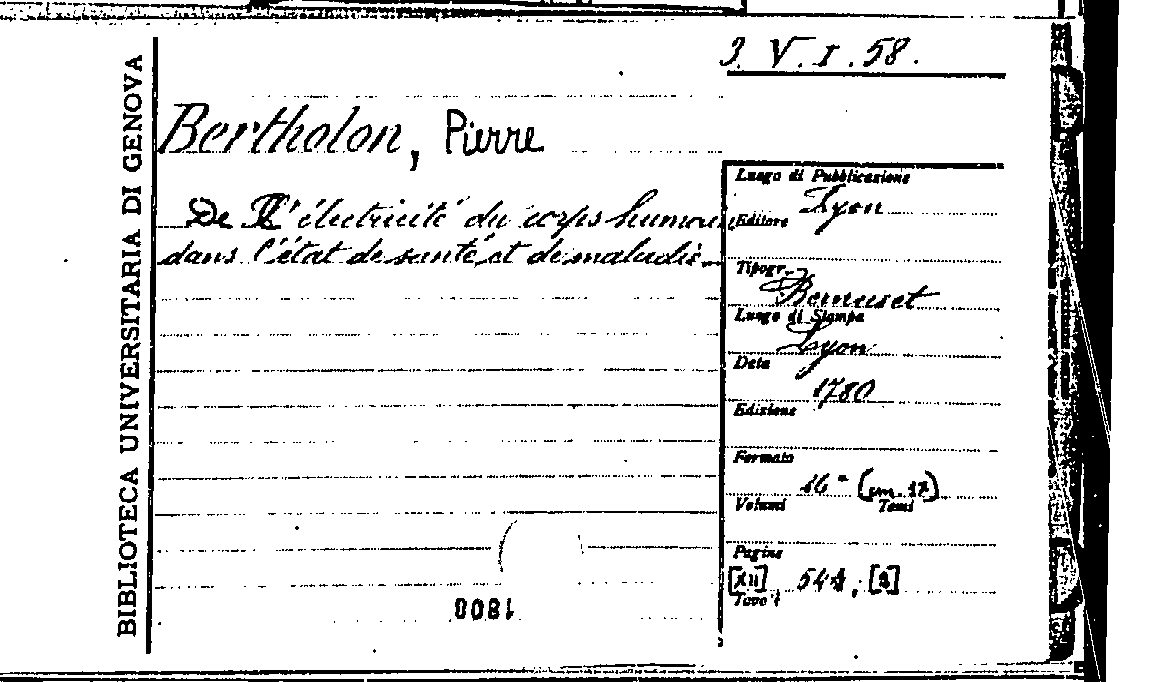 3. V. I. 58.
BIBLIOTECA UNIVERSITARIA DI GENOVA
Bertholon, Pierre
De l'électricité du corps humain
dans l'état de santé et de maladie.
Luogo di Pubblicazione
Lyon
Editore
Tipogr.
Bernuset
Luogo di Stampa
Lyon
Data
1780
Edizione
Formato
16° (cm. 17)
Volumi Tomi
Pagine
[XII] 541, [2]
Tavole
1800